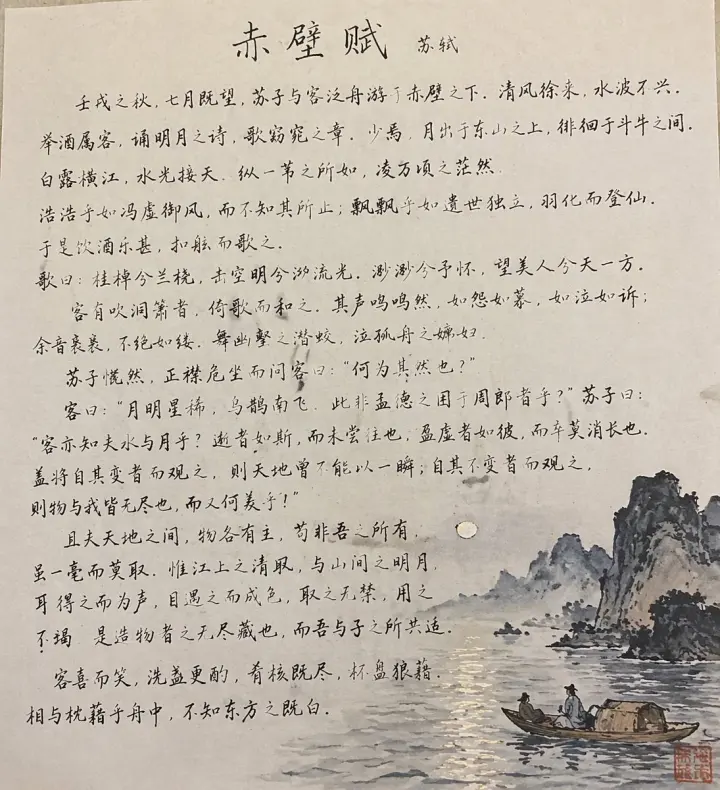 赤壁赋 苏轼
壬戌之秋，七月既望，苏子与客泛舟游于赤壁之下．清风徐来，水波不兴．
举酒属客，诵明月之诗，歌窈窕之章．少焉，月出于东山之上，徘徊于斗牛之间．
白露横江，水光接天．纵一苇之所如，凌万顷之茫然．
浩浩乎如冯虚御风，而不知其所止；飘飘乎如遗世独立，羽化而登仙．
于是饮酒乐甚，扣舷而歌之．
歌曰：桂棹兮兰桡，击空明兮溯流光．渺渺兮予怀，望美人兮天一方．
客有吹洞箫者，倚歌而和之．其声呜呜然，如怨如慕，如泣如诉；
余音袅袅，不绝如缕．舞幽壑之潜蛟，泣孤舟之嫠妇．
苏子愀然，正襟危坐而问客曰："何为其然也？"
客曰："月明星稀，乌鹊南飞．此非孟德之困于周郎者乎？"苏子曰：
"客亦知夫水与月乎？逝者如斯，而未尝往也，盈虚者如彼，而卒莫消长也．
盖将自其变者而观之，则天地曾不能以一瞬；自其不变者而观之，
则物与我皆无尽也，而又何羡乎！"
且夫天地之间，物各有主，苟非吾之所有，
虽一毫而莫取．惟江上之清风，与山间之明月，
耳得之而为声，目遇之而成色，取之无禁，用之
不竭．是造物者之无尽藏也，而吾与子之所共适．
客喜而笑，洗盏更酌，肴核既尽，杯盘狼藉．
相与枕藉乎舟中，不知东方之既白．